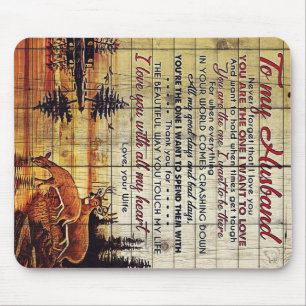 To my Husband
Never forget that I love you
YOU ARE THE ONE I WANT TO LOVE
And want to hold when times get tough
You are the one I want to be there
For when ever
IN YOUR WORLD COMES CRASHING DOWN
All my good days and bad days.
YOU'RE THE ONE I WANT TO SPEND THEM WITH
Thank you for
THE BEAUTIFUL WAY YOU TOUCH MY LIFE
I love you with all my heart
Love, your Wife